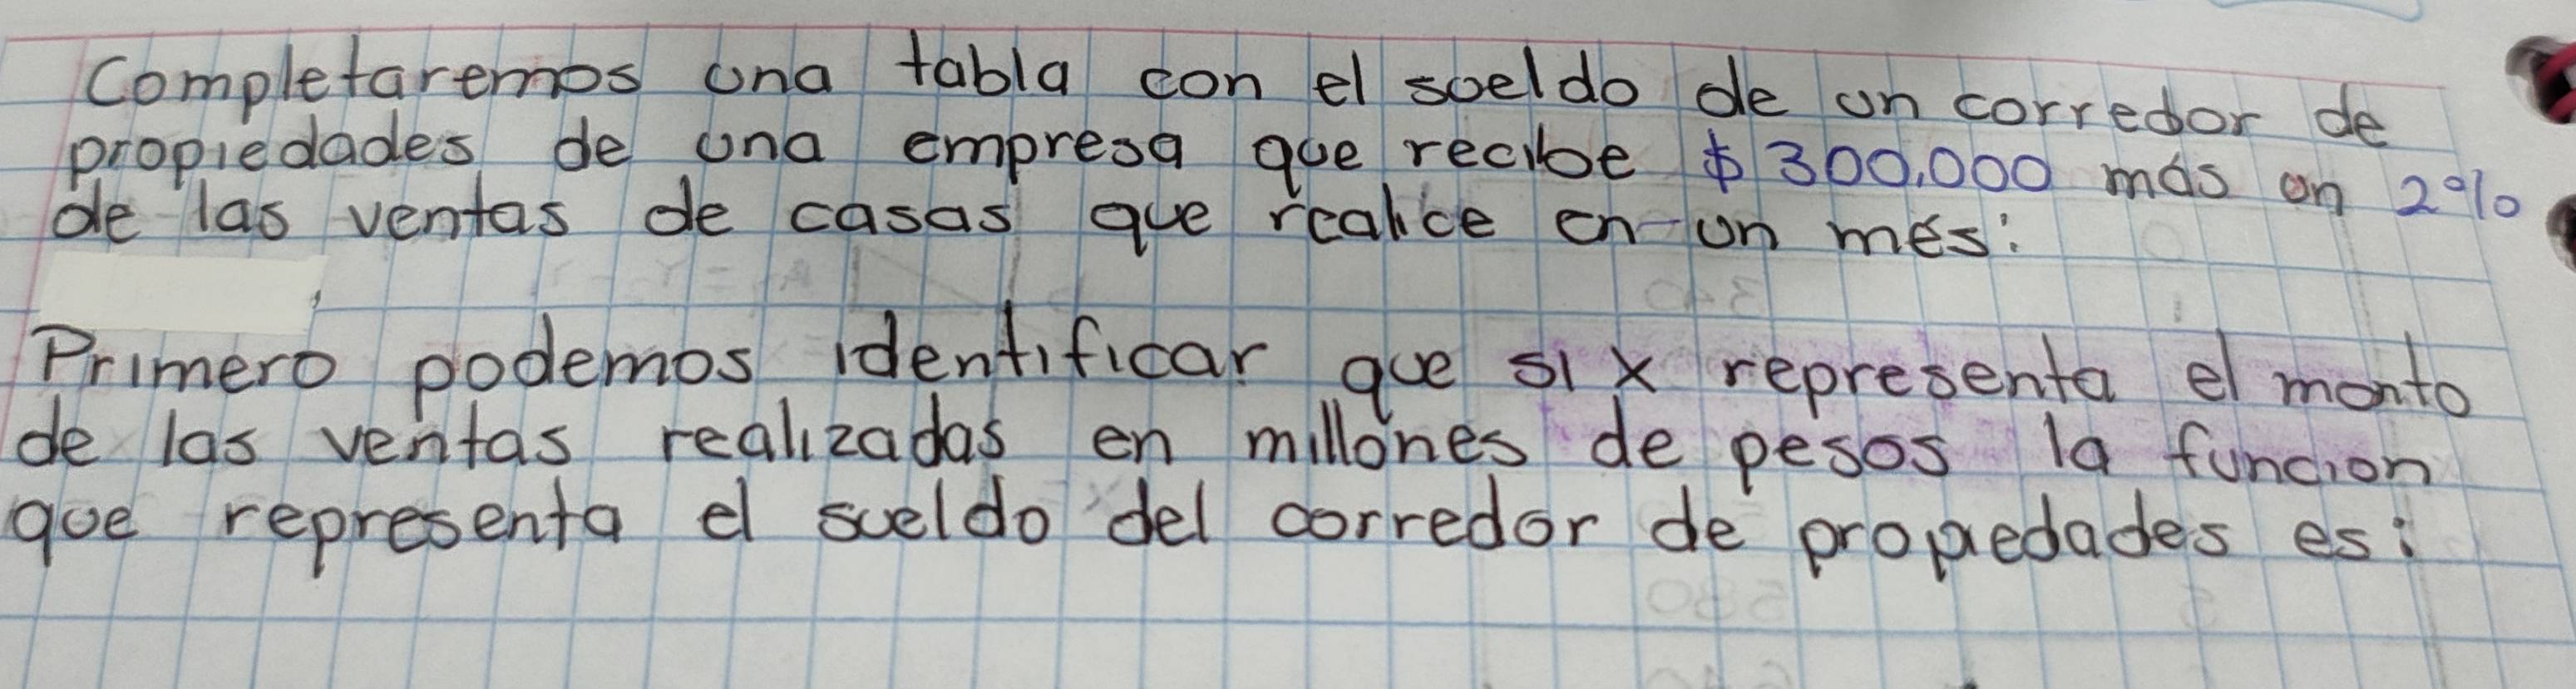 Completaremos una tabla con el sueldo de un corredor de
propiedades de una empresa que recibe $300,000 más un 2%
de las ventas de casas que realice en un més:
Primero podemos identificar que si x representa el monto
de las ventas realizadas en millones de pesos la funcion
que representa el sueldo del corredor de propiedades es: